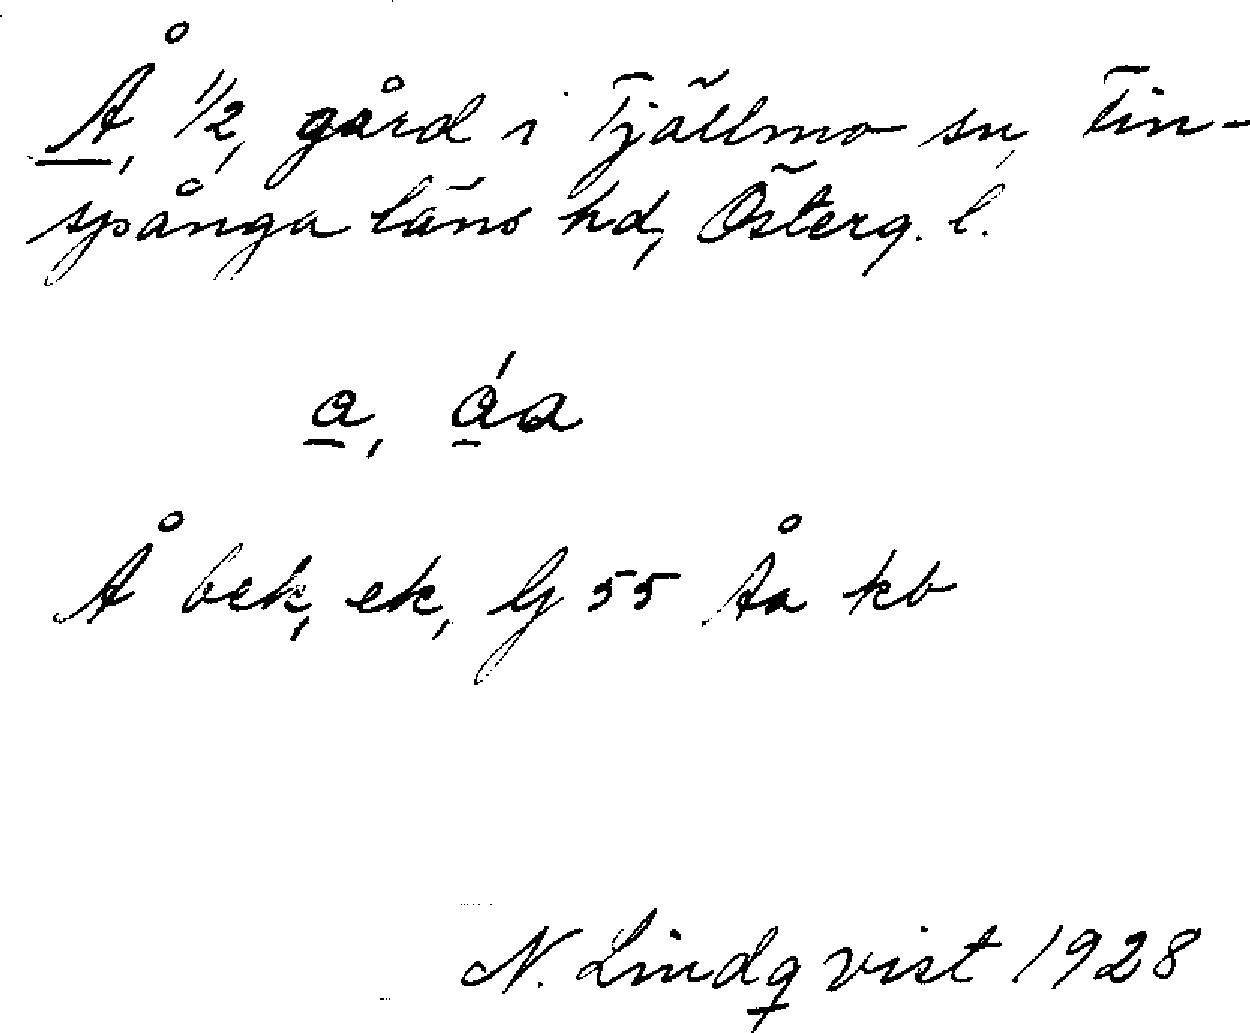 Å, 1/2, gård i Tjällmo sn, Fin-
spånga läns hd, Österg. l.
a, áa
Å bek, ek, G 55 Åa kb
N. Lindqvist 1928